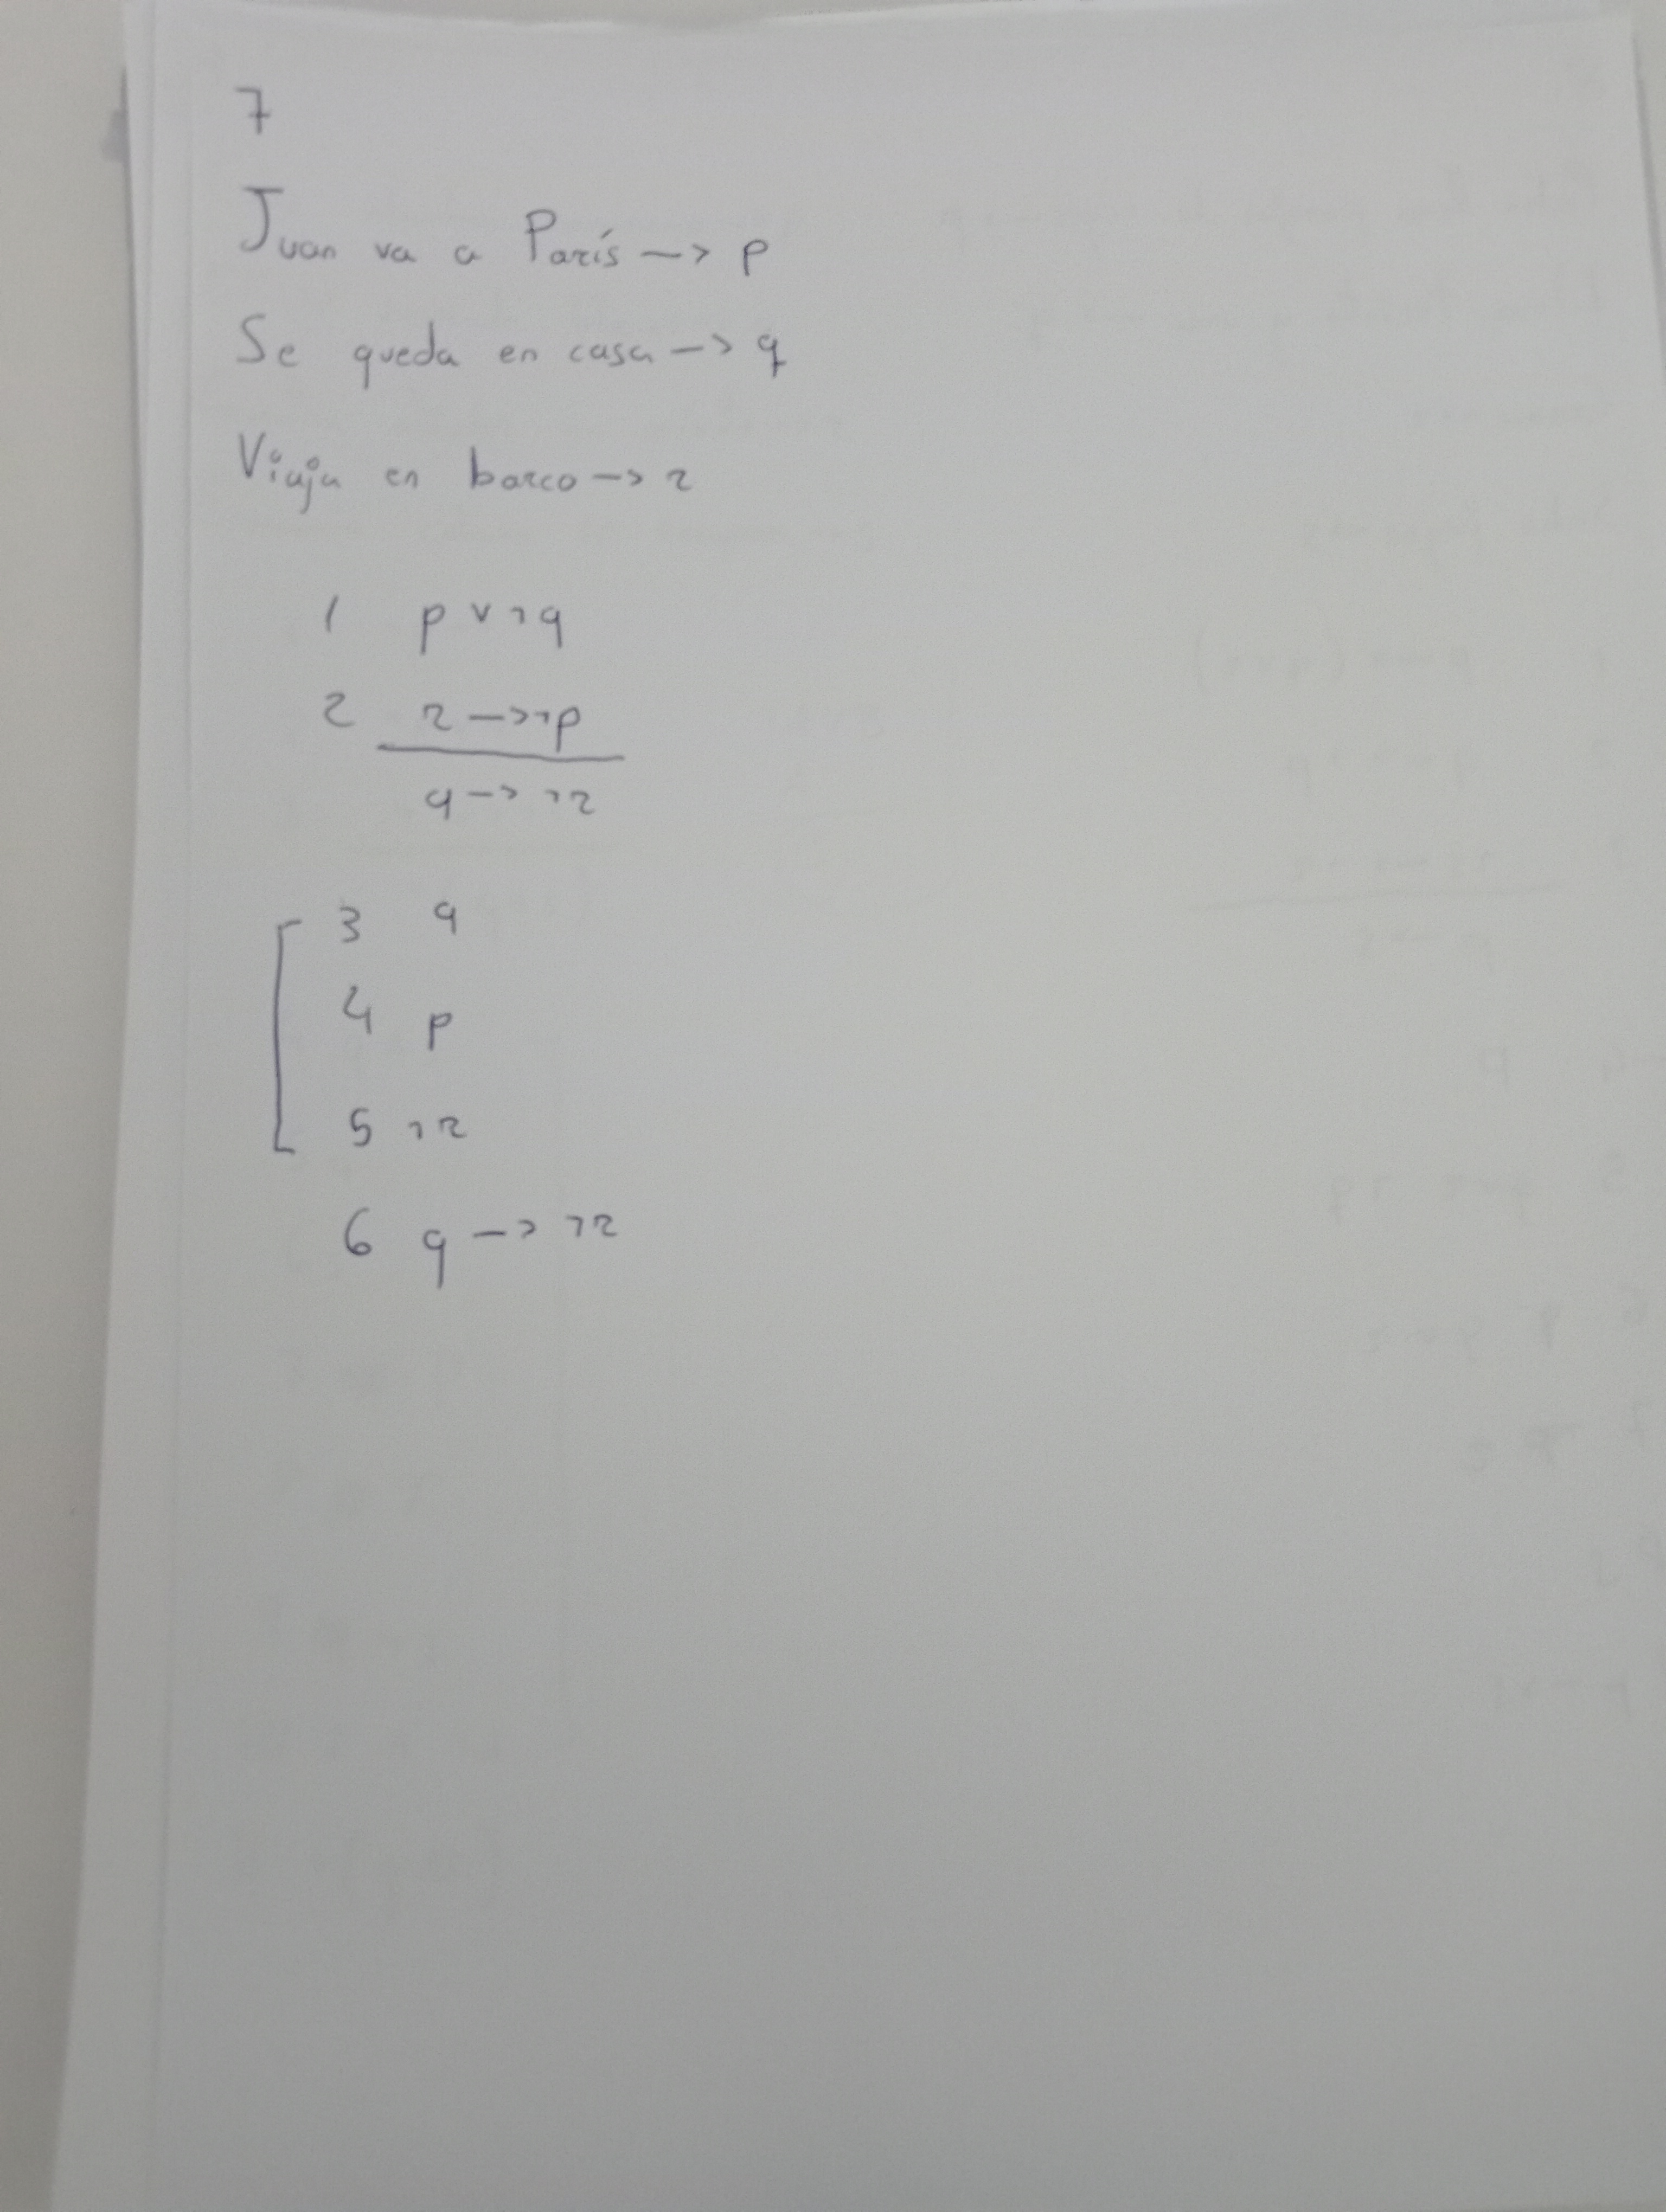 7
Juan va a París —> p
Se queda en casa —> q
Viaja en barco —> r
1 p ∨ ¬q
2 r —> ¬p
q —> ¬r
3 q
4 p
5 ¬r
6 q —> ¬r